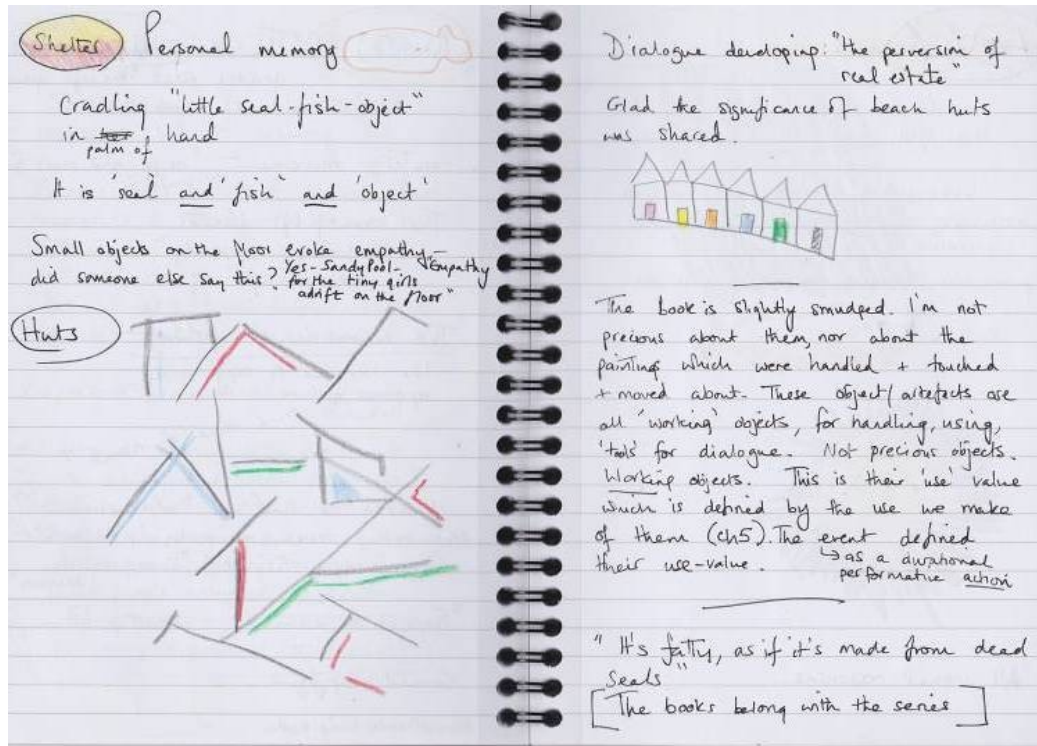 Shelter Personal memory
Cradling "little seal-fish-object"
in hand
palm of
It is 'seal' and 'fish' and 'object'
Small objects on the floor evoke empathy -
did someone else say this? Yes - Sandy Pool - "Empathy
for the tiny girls
adrift on the floor"
Huts
Dialogue developing: "the perversion of
real estate"
Glad the significance of beach huts
was shared.
The book is slightly smudged. I'm not
precious about them, nor about the
paintings which were handled + touched
+ moved about. These object/artefacts are
all 'working' objects, for handling, using,
'tools' for dialogue. Not precious objects.
Working objects. This is their 'use' value
which is defined by the use we make
of them (ch5). The event defined
their use-value. ↳ as a durational
performative action
"It's fatty, as if it's made from dead
seals"
[The books belong with the series]